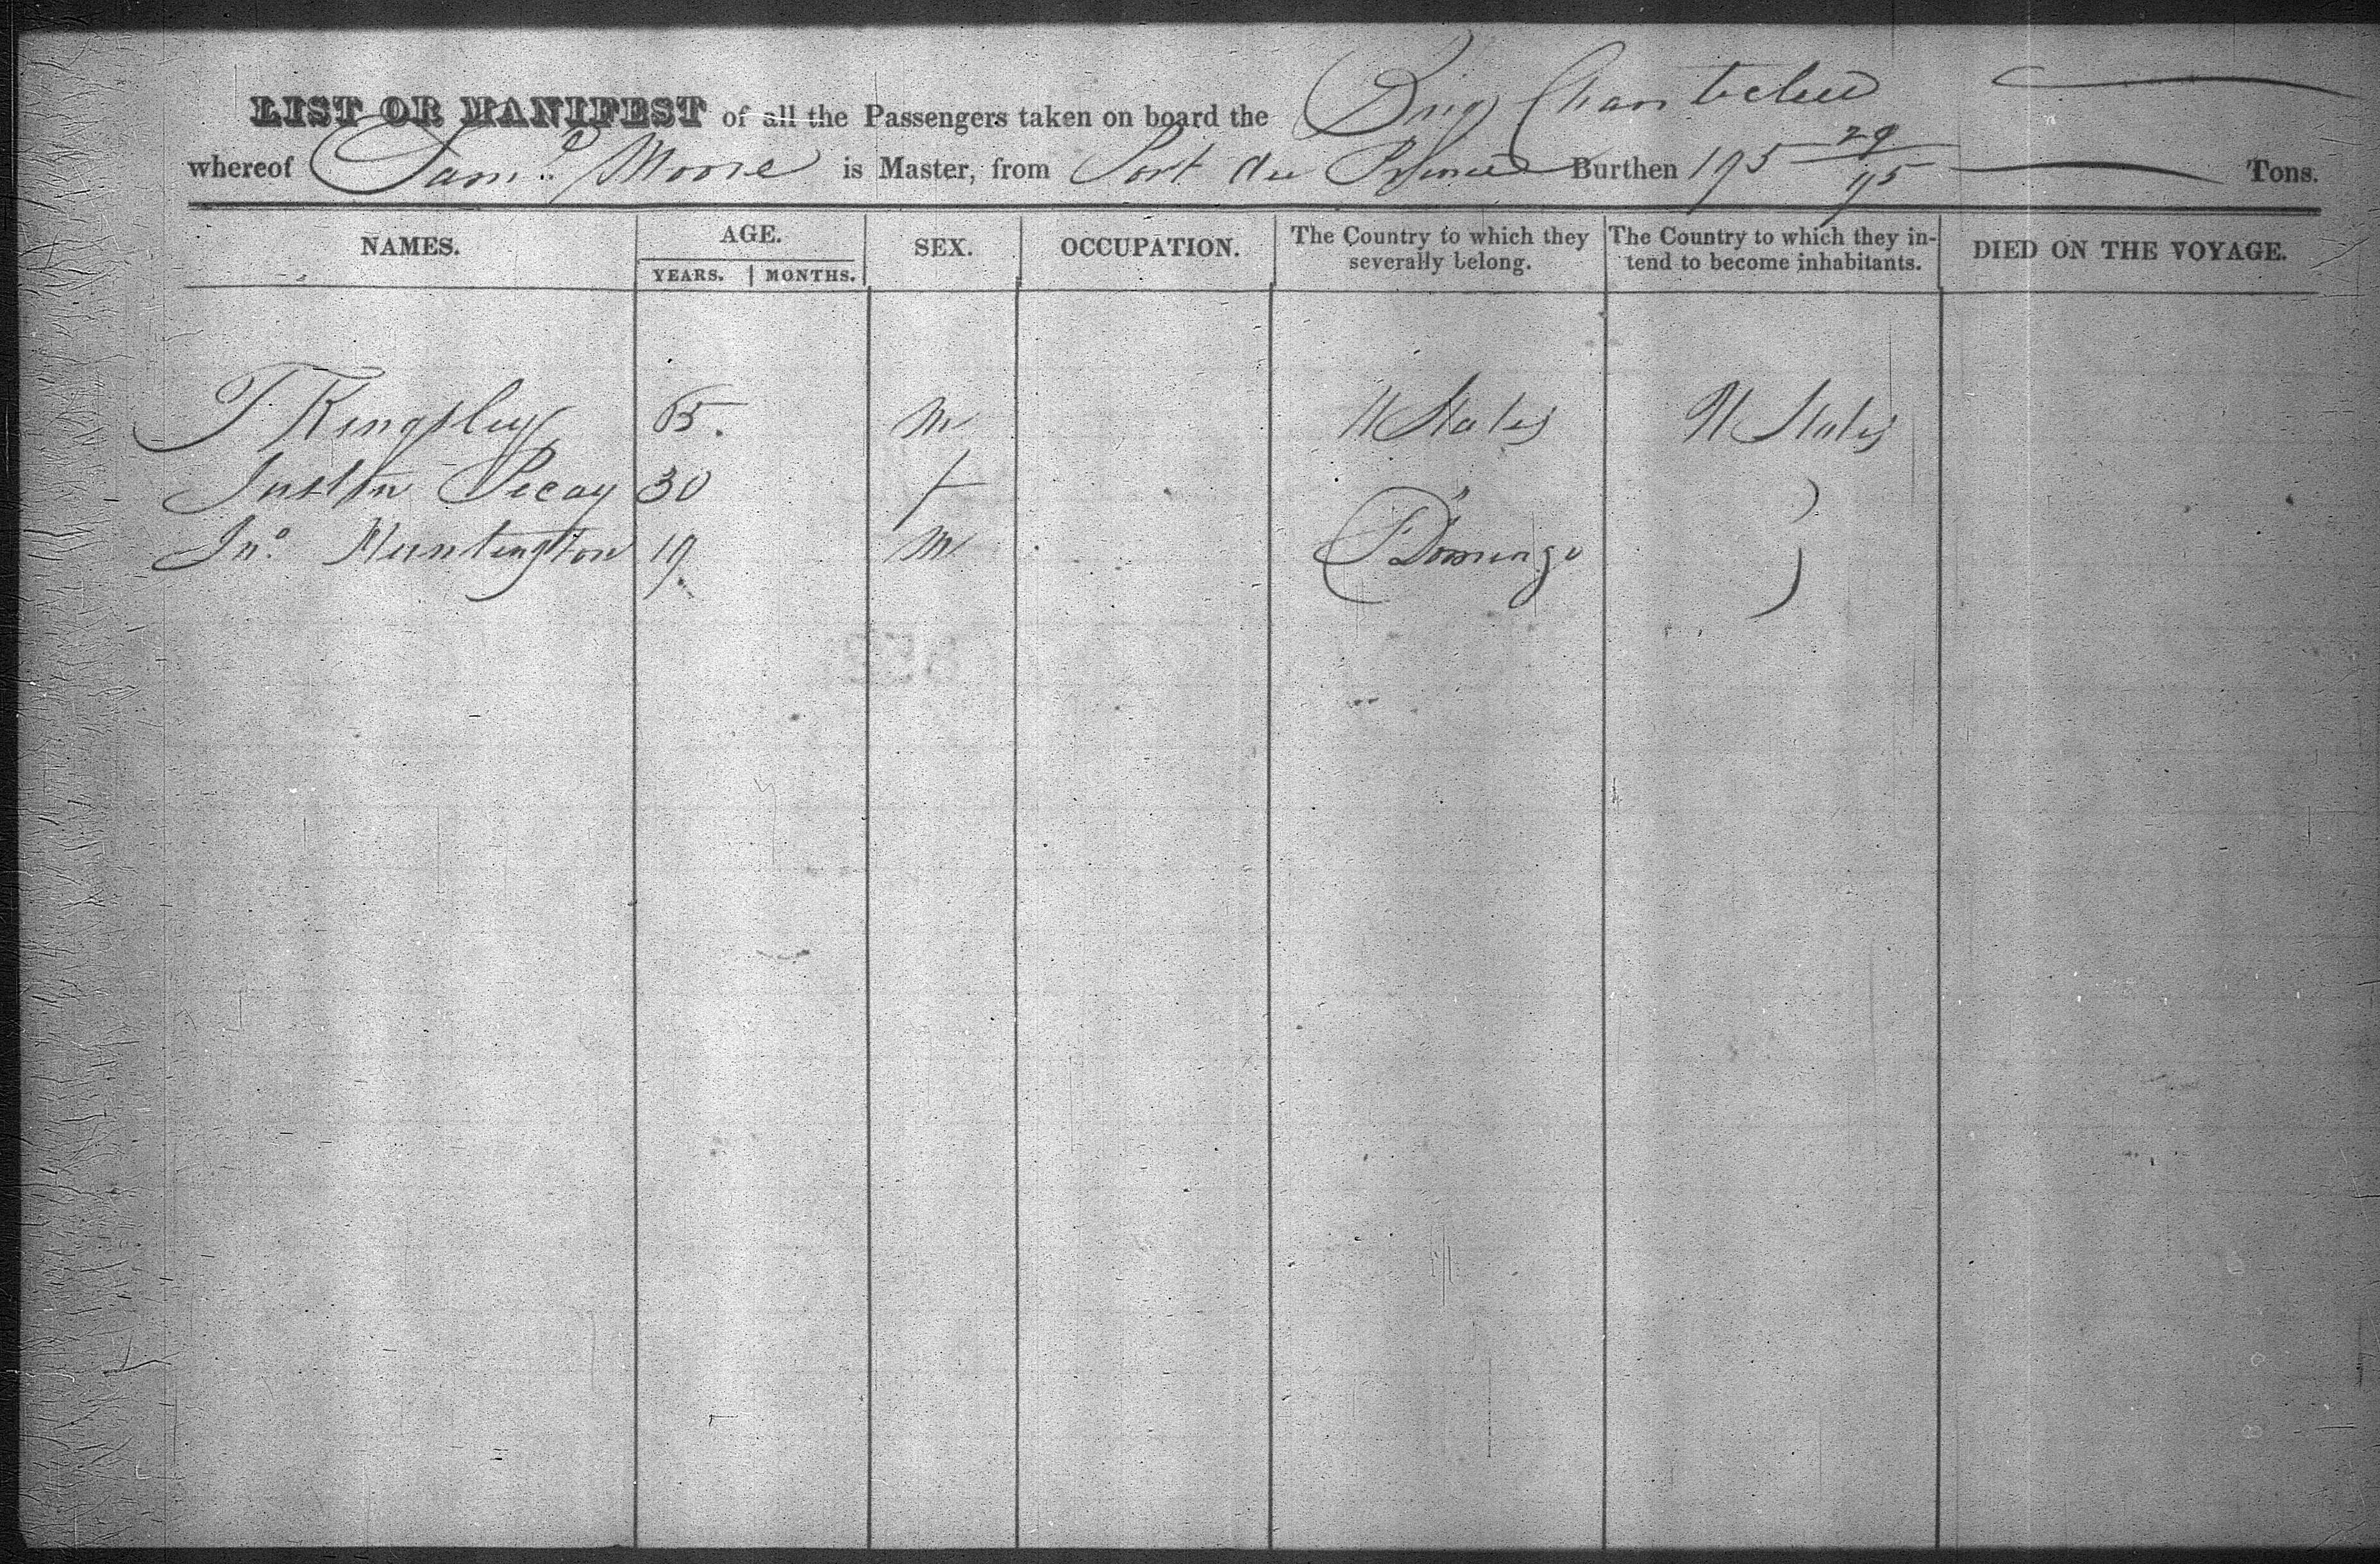 LIST OR MANIFEST of all the Passengers taken on board the Brig Chanticleer
whereof Saml. Moore is Master, from Port au Prince Burthen 195 29/95 Tons.
NAMES. AGE. SEX. OCCUPATION. The Country to which they severally belong. The Country to which they intend to become inhabitants. DIED ON THE VOYAGE.
YEARS. MONTHS.
Kingsley 65. M U States U States
30 f "
Jno. Huntington 19. M Domingo